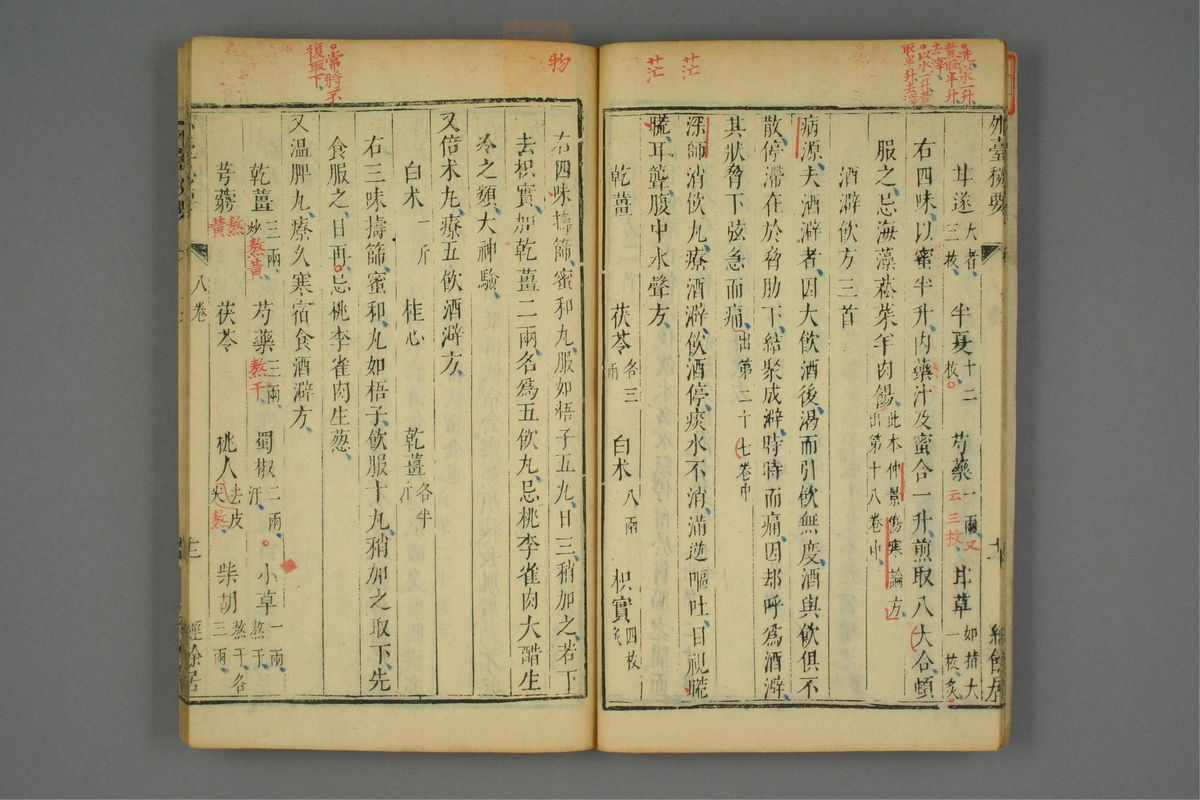 洗以水一升
煮取半升
去滓
以水一升煮
取半升去滓
外臺秘要
甘遂大者三枚 半夏十二枚 芍藥一兩又云三枚 甘草如指大一枚炙
右四味以蜜半升內藥汁及蜜合一升煎取八大合頓
服之忌海藻菘菜羊肉餳此本仲景傷寒論方出第十八卷中
酒澼飲方三首
病源夫酒澼者因大飲酒後渴而引飲無度酒與飲俱不
散停滯在於脅肋下結聚成澼時時而痛因卽呼為酒澼
其狀脅下弦急而痛出第二十七卷中
深師消飲丸療酒澼飲酒停痰水不消滿逆嘔吐目視𥆨
𥆨耳聾腹中水聲方
乾薑 茯苓各三兩 白朮八兩 枳實四枚炙
茫
茫
經餘居
物
右四味擣篩蜜和丸服如梧子五丸日三稍加之若下
去枳實加乾薑二兩名為五飲丸忌桃李雀肉大醋生
冷之類大神驗
又倍朮丸療五飲酒澼方
白朮一斤 桂心 乾薑各半斤
右三味擣篩蜜和丸如梧子飲服十丸稍加之取下先
食服之日再忌桃李雀肉生葱
常時不
復取下
又溫脾丸療久寒宿食酒澼方
乾薑三兩炒熬黃 芍藥三兩熬干 蜀椒二兩汗 小草一兩熬干
芎藭熬黃 茯苓 桃人去皮尖熬 柴胡各三兩熬干
八卷
經餘居